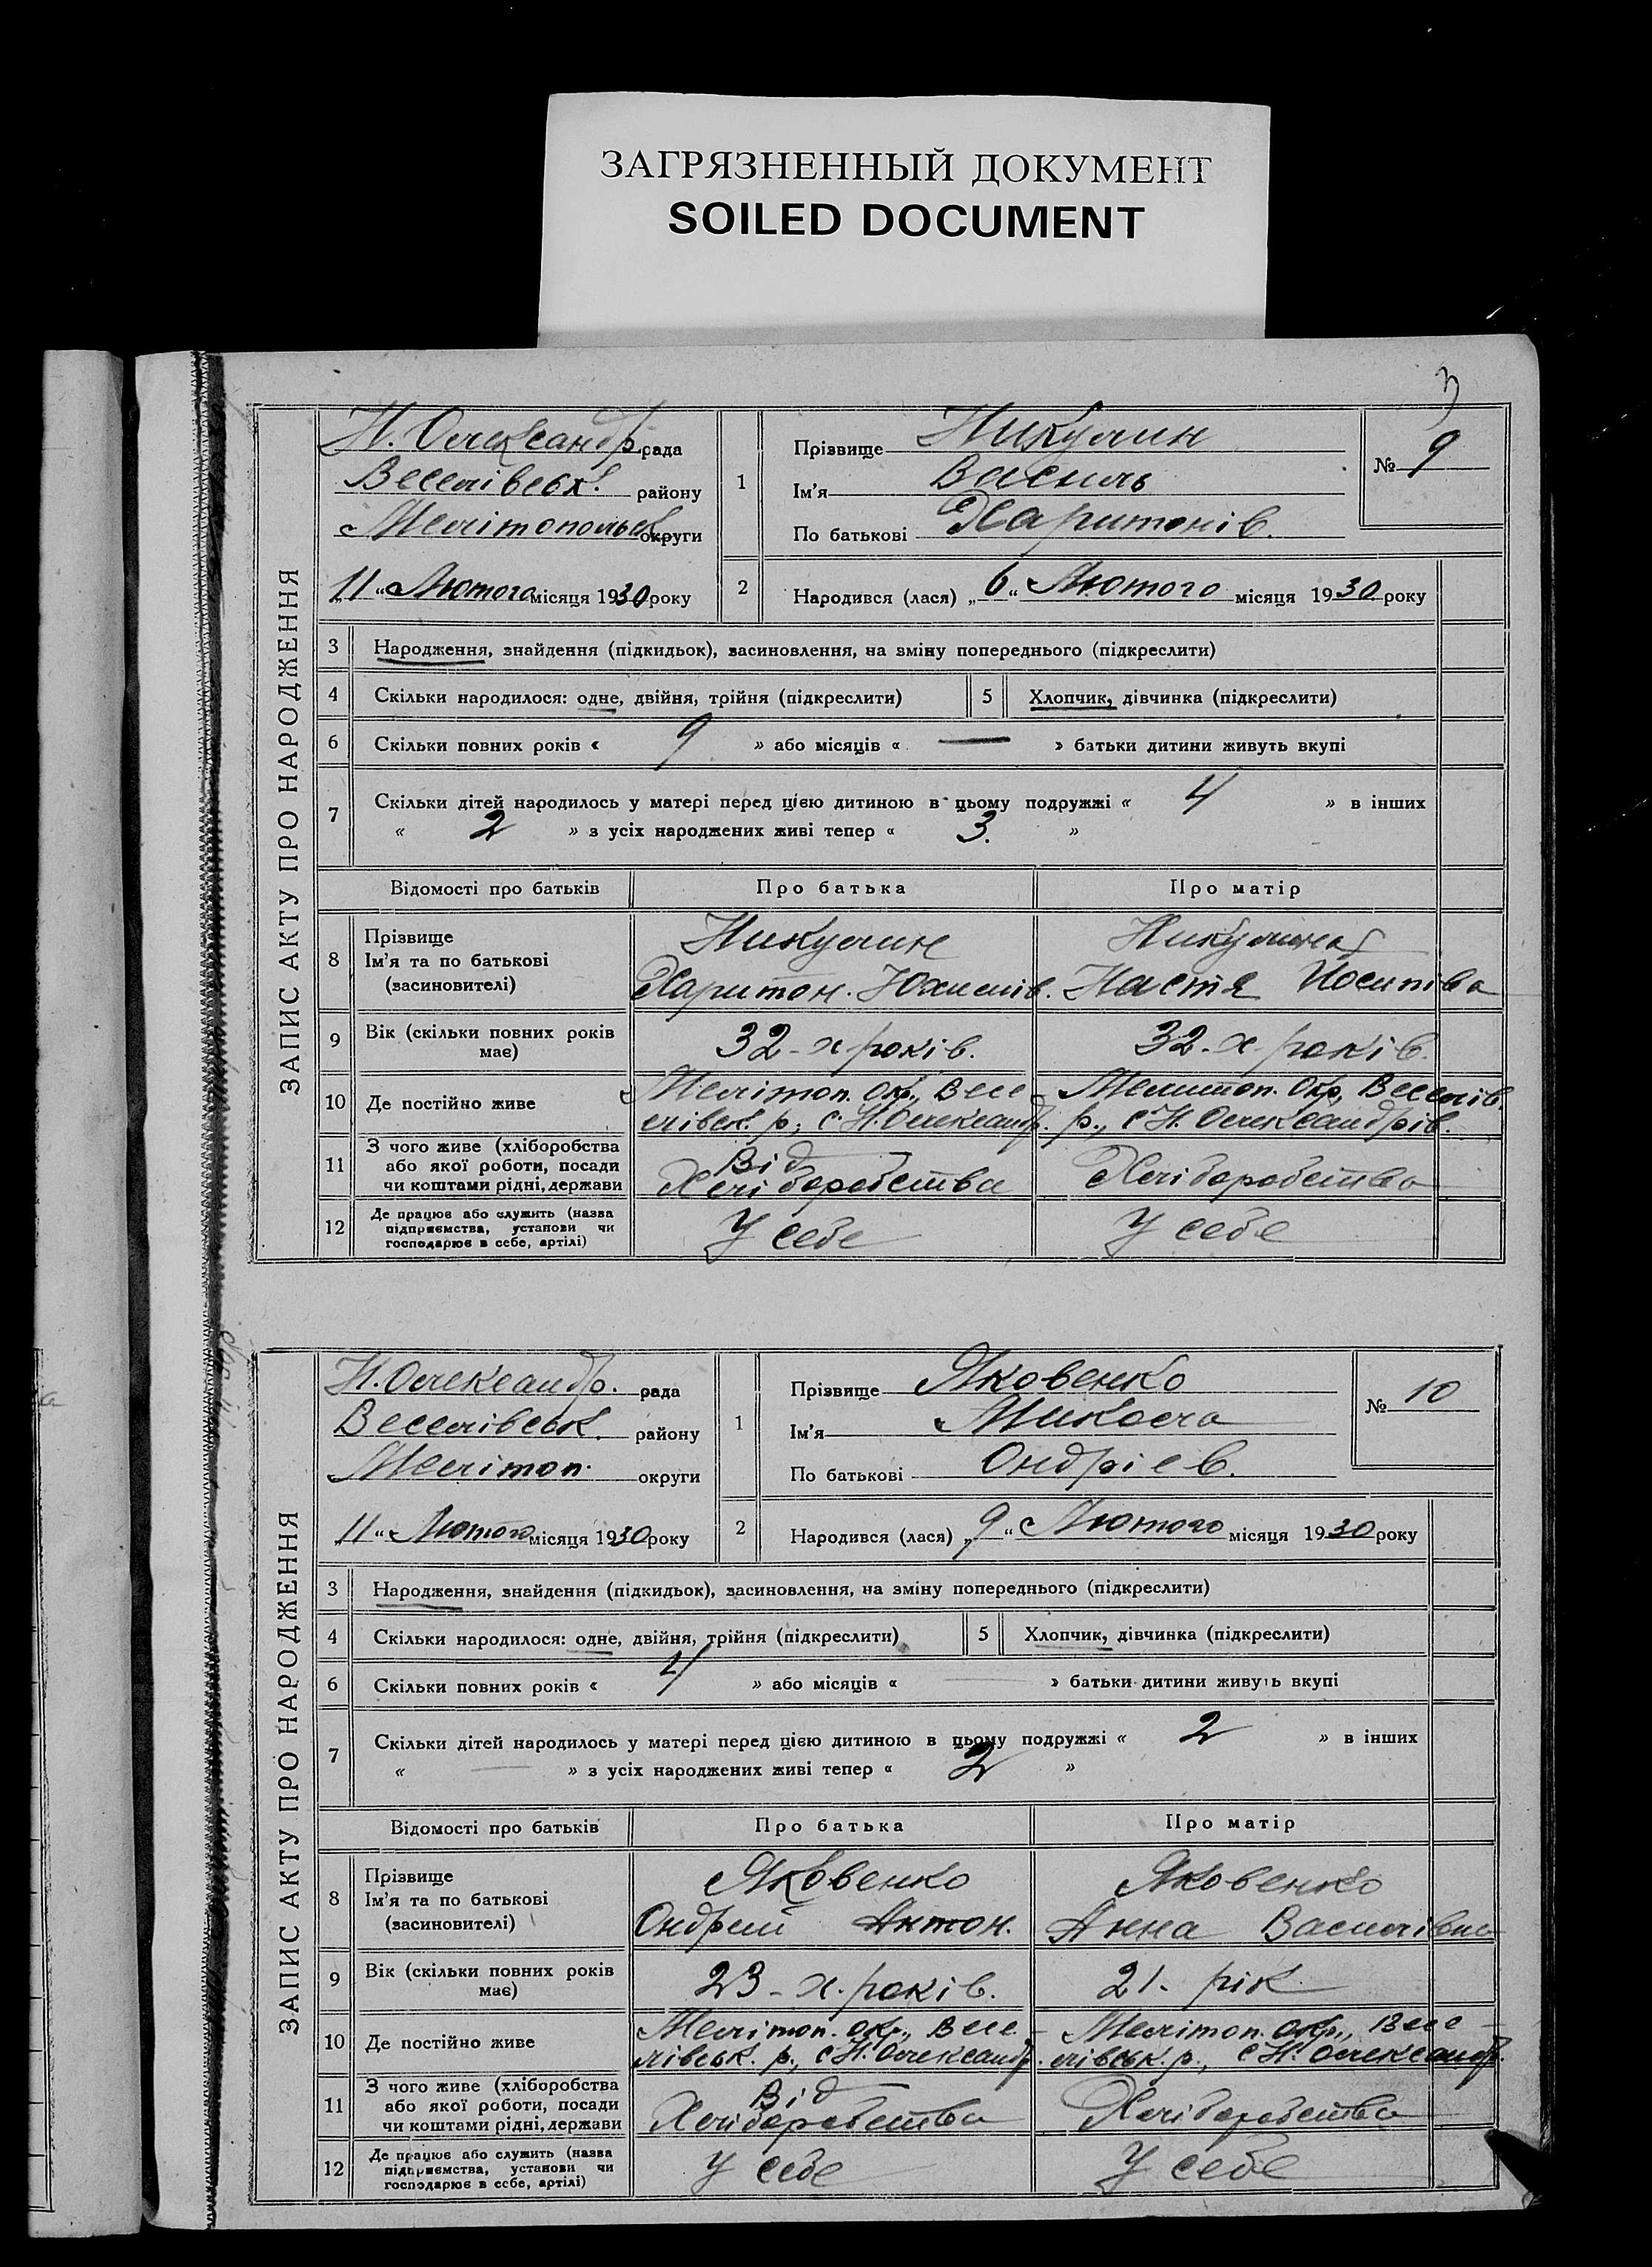 ЗАГРЯЗНЕННЫЙ ДОКУМЕНТ
SOILED DOCUMENT
3
ЗАПИС АКТУ ПРО НАРОДЖЕННЯ
Н. Олександр. рада
Веселівськ. району
Мелітопольськ округи
„11“ Лютого місяця 1930 року
1
Прізвище Никулин
Ім'я Василь
По батькові Харитонів.
№ 9
2 Народився (лася) „6“ Лютого місяця 1930 року
3 Народження, знайдення (підкидьок), васиновлення, на зміну попереднього (підкреслити)
4 Скільки народилося: одне, двійня, трійня (підкреслити) 5 Хлопчик, дівчинка (підкреслити)
6 Скільки повних років « 9 » або місяців « — » батьки дитини живуть вкупі
7 Скільки дітей народилось у матері перед цією дитиною в цьому подружжі « 4 » в інших
« 2 » з усіх народжених живі тепер « 3. »
Відомості про батьків Про батька Про матір
8 Прізвище
Ім'я та по батькові
(засиновителі)
Никулин
Харитон. Юхимів.
Никулина
Настя Йосипівa
9 Вік (скільки повних років
має)
32-х років.
32-х років.
10 Де постійно живе
Мелітоп. окр., Весе
лівськ. р., с. Н. Олександр.
Мелитоп. Окр, Веселів.
р., с. Н. Олександрів.
11 З чого живе (хліборобства
або якої роботи, посади
чи коштами рідні, держави
Від
Хліборобства
Хліборобства
12 Де працює або служить (назва
підприємства, установи чи
господарює в себе, артілі)
У себе
У себе
ЗАПИС АКТУ ПРО НАРОДЖЕННЯ
Н. Олександр. рада
Веселівськ. району
Мелітоп. округи
„11“ Лютого місяця 1930 року
1
Прізвище Яковенко
Ім'я Микола
По батькові Ондріев.
№ 10
2 Народився (лася) „9“ Лютого місяця 1930 року
3 Народження, знайдення (підкидьок), васиновлення, на зміну попереднього (підкреслити)
4 Скільки народилося: одне, двійня, трійня (підкреслити) 5 Хлопчик, дівчинка (підкреслити)
6 Скільки повних років « 4 » або місяців « — » батьки дитини живуть вкупі
7 Скільки дітей народилось у матері перед цією дитиною в цьому подружжі « 2 » в інших
« — » з усіх народжених живі тепер « 2 »
Відомості про батьків Про батька Про матір
8 Прізвище
Ім'я та по батькові
(засиновителі)
Яковенко
Ондрий Антон.
Яковенко
Анна Василівна
9 Вік (скільки повних років
має)
23-х. років.
21. рік
10 Де постійно живе
Мелітоп. окр., Весе-
лівськ. р., с Н. Олександр.
Мелітоп. окр., Весе-
лівськ. р., с Н. Олександр.
11 З чого живе (хліборобства
або якої роботи, посади
чи коштами рідні, держави
Від
Хліборобства
Хліборобства
12 Де працює або служить (назва
підприємства, установи чи
господарює в себе, артілі)
У себе
У себе